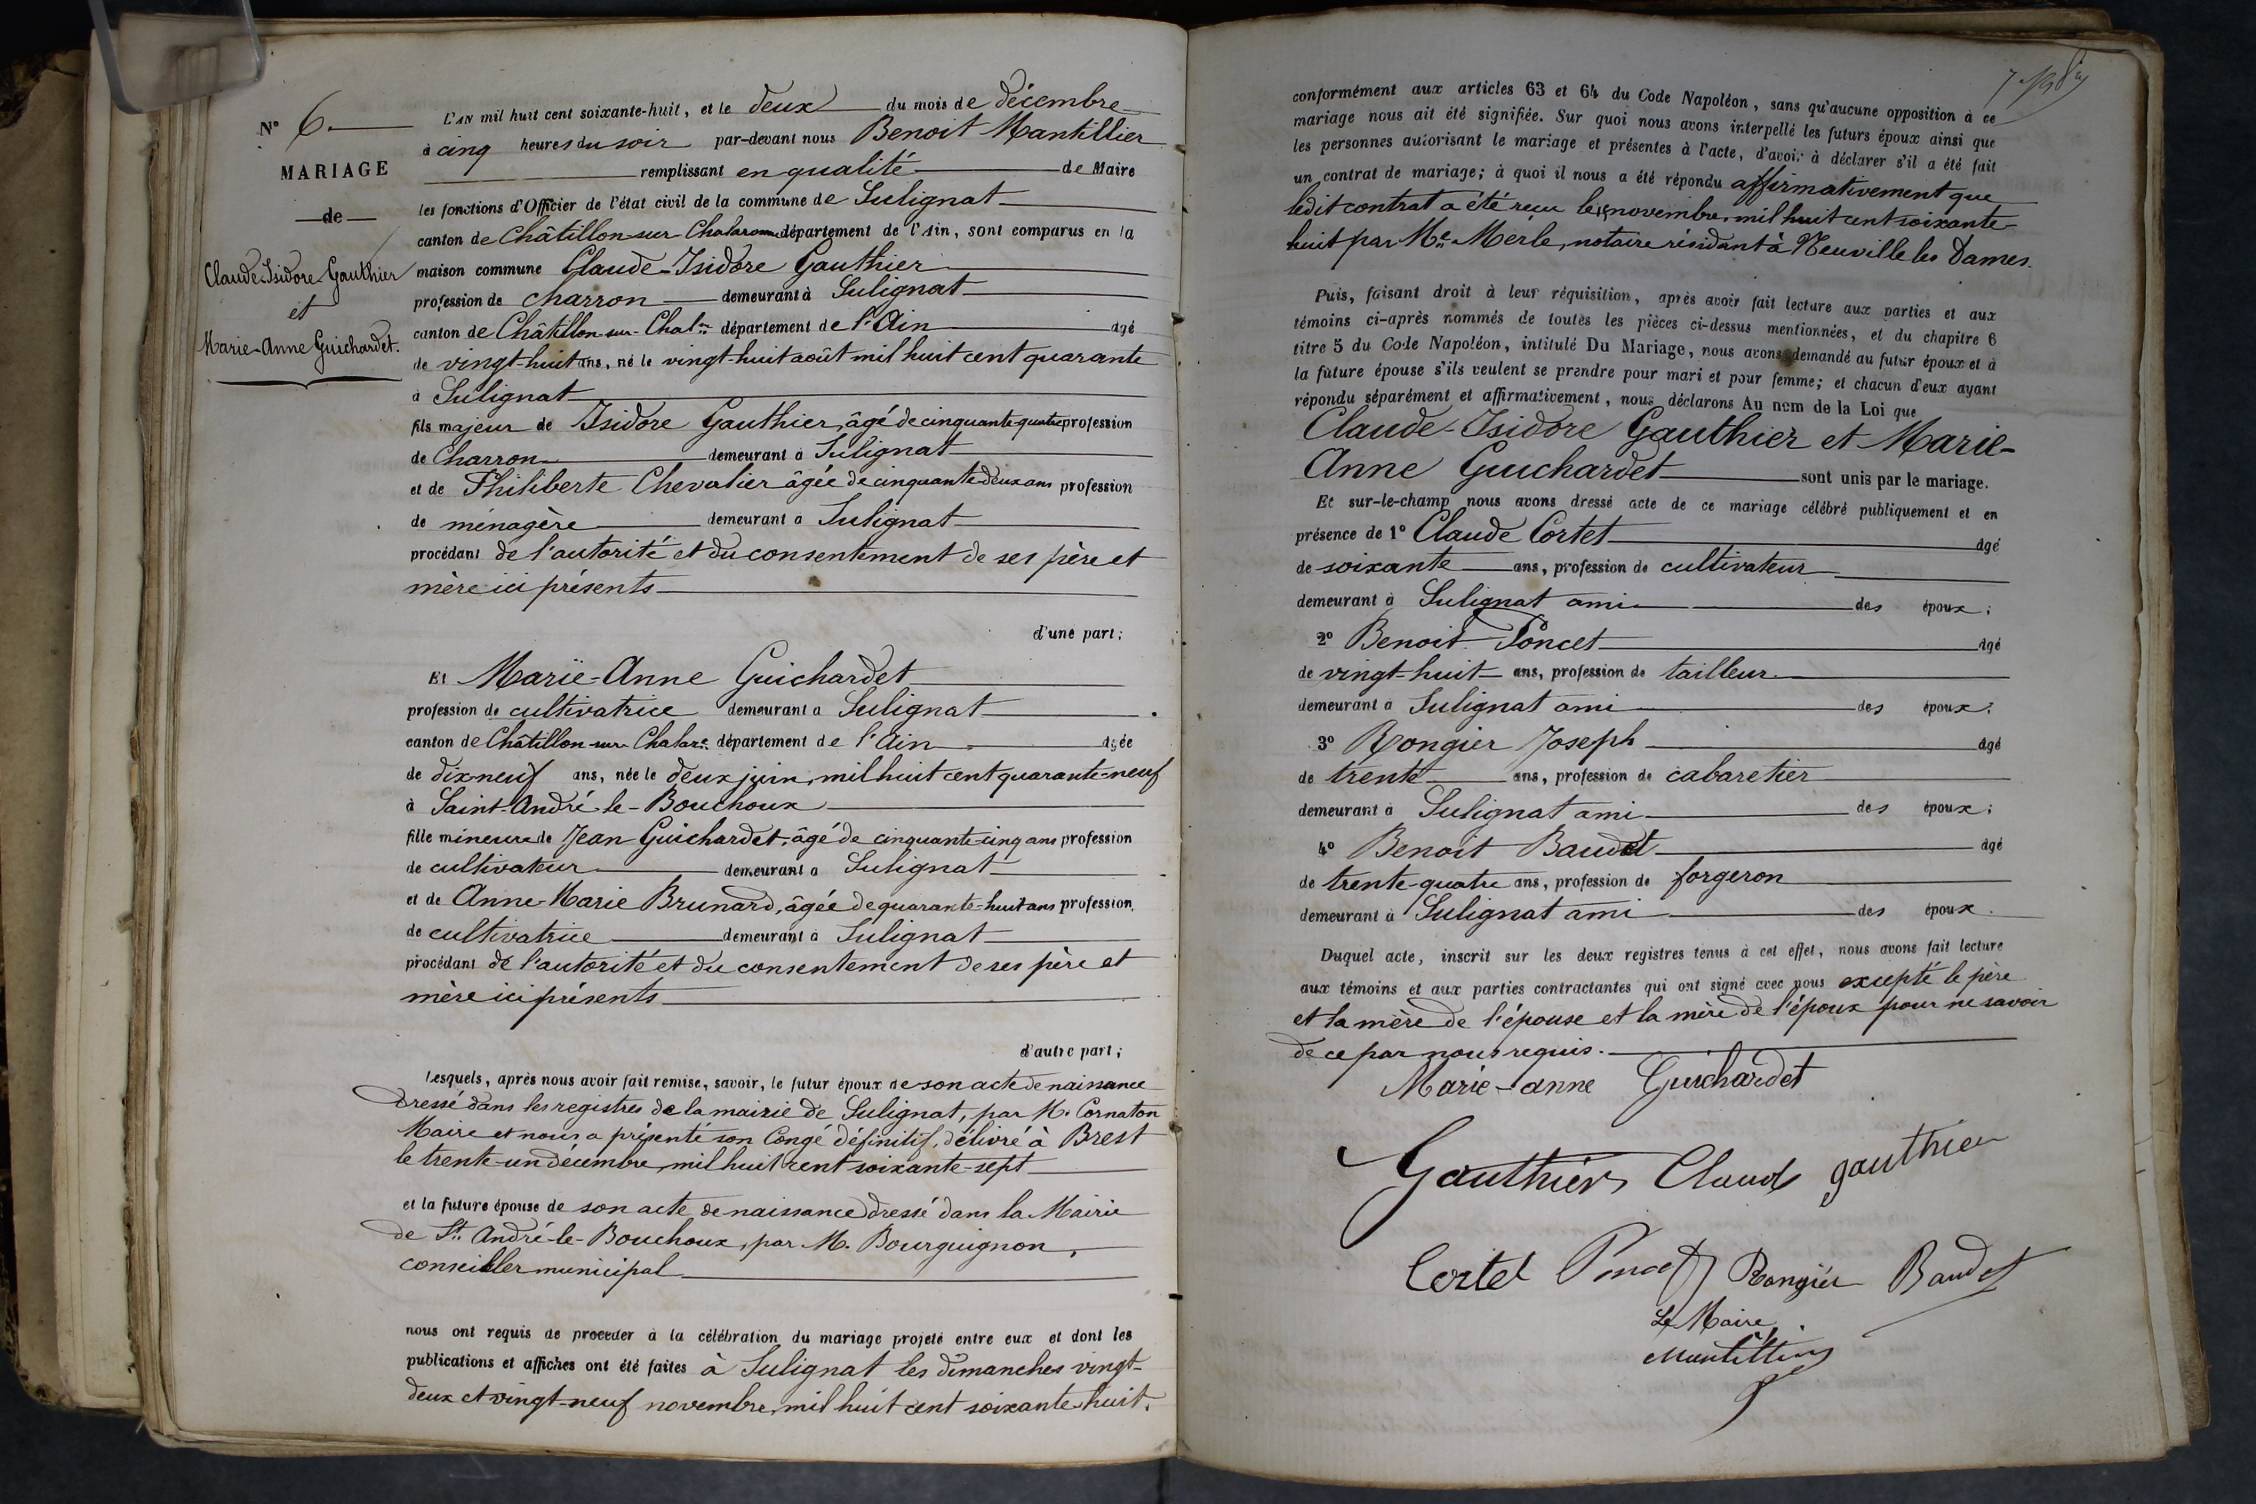 N° 6.
MARIAGE
de
Claude-Isidore Gauthier
et
Marie-Anne Guichardet.
L'AN mil huit cent soixante-huit, et le deux du mois de décembre
à cinq heures du soir par-devant nous Benoit Mantillier
remplissant en qualité de Maire
les fonctions d'Officier de l'état civil de la commune de Sulignat
canton de Châtillon-sur Chalaronne département de l'Ain, sont comparus en la
maison commune Claude-Isidore Gauthier
profession de charron demeurant à Sulignat
canton de Châtillon-sur-Chal.ne département de l'Ain âgé
de vingt-huit ans, né le vingt-huit août mil huit cent quarante
à Sulignat
fils majeur de Isidore Gauthier, âgé de cinquante-quatre profession
de Charron demeurant à Sulignat
et de Philiberte Chevalier âgée de cinquante-deux ans profession
de ménagère demeurant à Sulignat
procédant de l'autorité et du consentement de ses père et
mère ici présents
d'une part;
Et Marie-Anne Guichardet
profession de cultivatrice demeurant à Sulignat
canton de Châtillon-sur-Chalar.ne département de l'Ain âgée
de dix-neuf ans, née le deux juin, mil huit cent quarante-neuf
à Saint-André-le-Bouchoux
fille mineure de Jean Guichardet, âgé de cinquante-cinq ans profession
de cultivateur demeurant à Sulignat
et de Anne-Marie Brunard, âgée de quarante-huit ans profession
de cultivatrice demeurant à Sulignat
procédant de l'autorité et du consentement de ses père et
mère ici présents
d'autre part;
Lesquels, après nous avoir fait remise, savoir, le futur époux de son acte de naissance
dressé dans les registres de la mairie de Sulignat, par M. Cornaton
Maire et nous a présenté son Congé définitif, délivré à Brest
le trente-un décembre, mil huit cent soixante-sept
et la future épouse de son acte de naissance dressé dans la Mairie
de St. André-le-Bouchoux, par M. Bourguignon,
conseiller municipal
nous ont requis de procéder à la célébration du mariage projeté entre eux et dont les
publications et affiches ont été faites à Sulignat les dimanches vingt-
deux et vingt-neuf novembre, mil huit cent soixante-huit.
conformément aux articles 63 et 64 du Code Napoléon, sans qu'aucune opposition à ce
mariage nous ait été signifiée. Sur quoi nous avons interpellé les futurs époux ainsi que
les personnes autorisant le mariage et présentes à l'acte, d'avoir à déclarer s'il a été fait
un contrat de mariage; à quoi il nous a été répondu affirmativement que
ledit contrat a été reçu le novembre, mil huit cent soixante-
huit par Me. Merle, notaire résidant à Neuville les Dames.
Puis, faisant droit à leur réquisition, après avoir fait lecture aux parties et aux
témoins ci-après nommés de toutes les pièces ci-dessus mentionnées, et du chapitre 6
titre 5 du Code Napoléon, intitulé Du Mariage, nous avons demandé au futur époux et à
la future épouse s'ils veulent se prendre pour mari et pour femme; et chacun d'eux ayant
répondu séparément et affirmativement, nous déclarons Au nom de la Loi que
Claude-Isidore Gauthier et Marie-
Anne Guichardet sont unis par le mariage.
Et sur-le-champ nous avons dressé acte de ce mariage célébré publiquement et en
présence de 1° Claude Cortet âgé
de soixante ans, profession de cultivateur
demeurant à Sulignat ami des époux;
2° Benoit Poncet âgé
de vingt-huit ans, profession de tailleur
demeurant à Sulignat ami des époux;
3° Rongier Joseph âgé
de trente ans, profession de cabaretier
demeurant à Sulignat ami des époux;
4° Benoit Baudet âgé
de trente-quatre ans, profession de forgeron
demeurant à Sulignat ami des époux.
Duquel acte, inscrit sur les deux registres tenus à cet effet, nous avons fait lecture
aux témoins et aux parties contractantes qui ont signé avec nous excepté le père
et la mère de l'épouse et la mère de l'époux pour ne savoir
de ce par nous requis.
Marie-anne Guichardet
Gauthier Claude gauthier
Cortet Poncet Rongier Baudet
Le Maire,
Mantillier